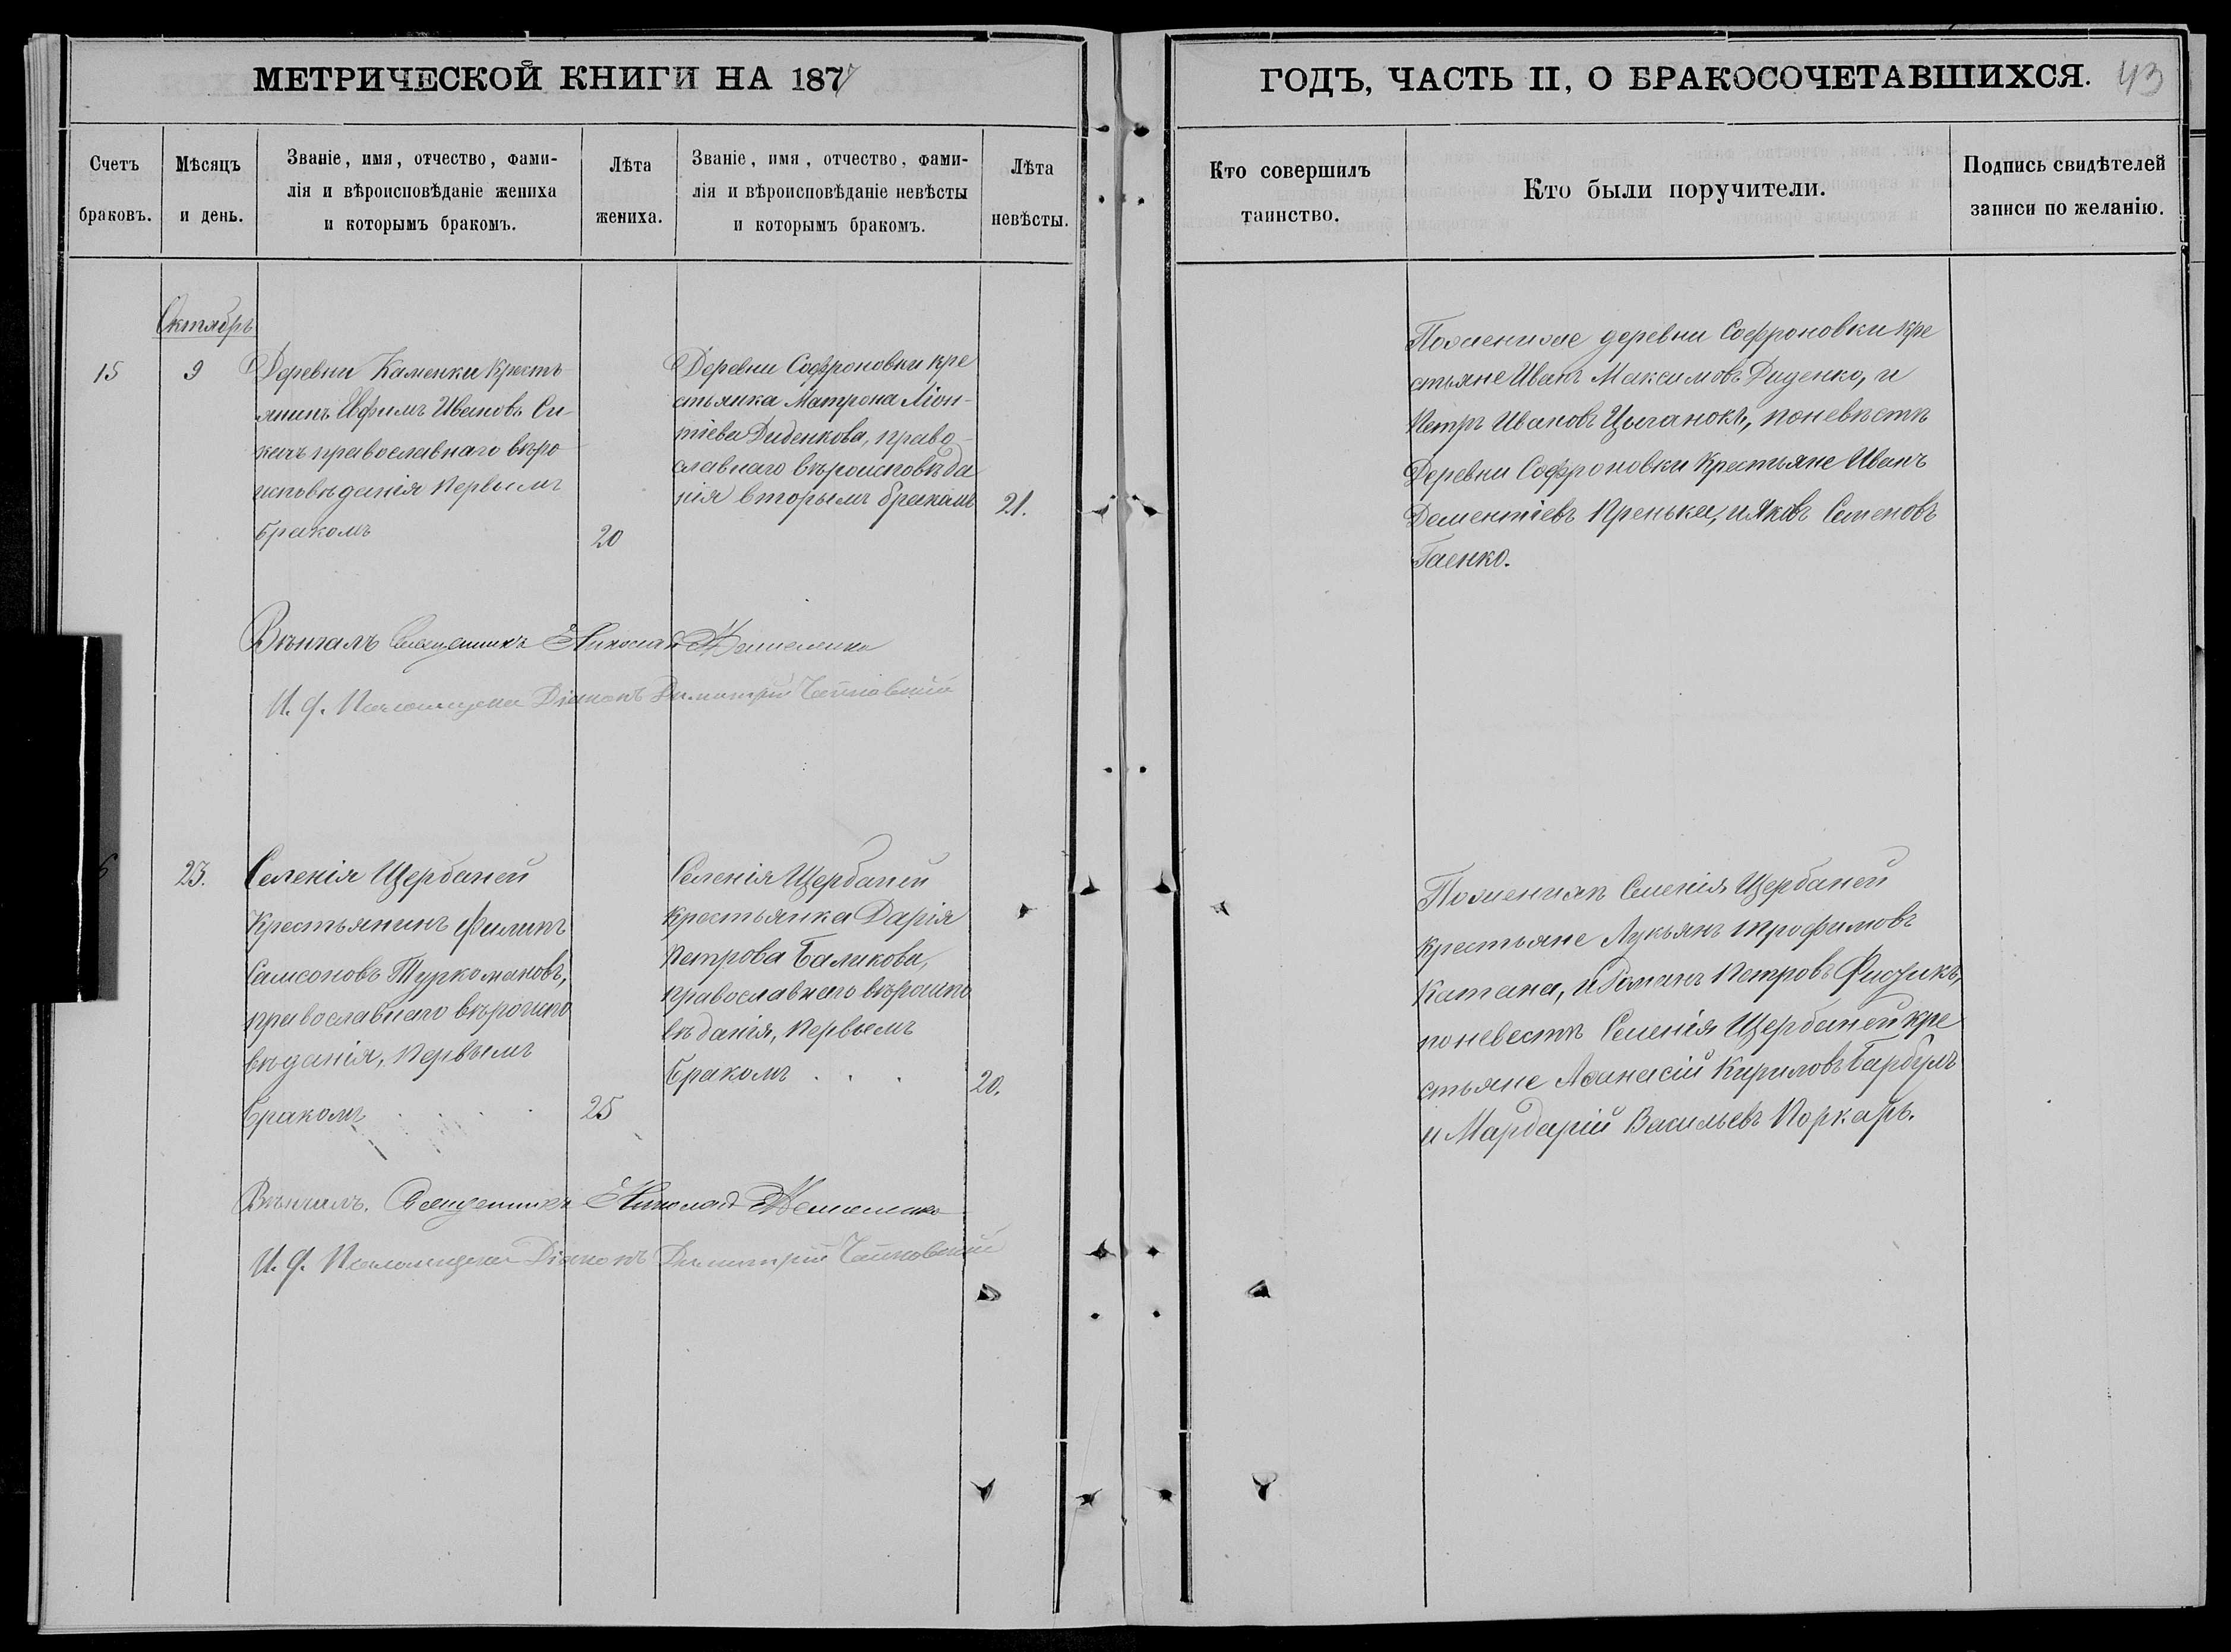 МЕТРИЧЕСКОЙ КНИГИ НА 1877
ГОДЪ, ЧАСТЬ II, О БРАКОСОЧЕТАВШИХСЯ.
43
Счетъ
браковъ.
Мѣсяцъ
и день.
Званіе, имя, отчество, фами-
лія и вѣроисповѣданіе жениха
и которымъ бракомъ.
Лѣта
жениха.
Званіе, имя, отчество, фами-
лія и вѣроисповѣданіе невѣсты
и которымъ бракомъ.
Лѣта
невѣсты.
Кто совершилъ
таинство.
Кто были поручители.
Подпись свидѣтелей
записи по желанію.
Октябрь
15
9
Деревни Каменки Кресть
янинъ Ефимъ Ивановъ Си-
качъ православнаго вѣро
исповѣданія Первымъ
бракомъ
20
Деревни Софроновки кре
стьянка Матрона Ліон-
тіева Диденкова, право-
славнаго вѣроисповѣда
нія вторымъ бракомъ
21.
По женихѣ деревни Софроновки кре
стьяне Иванъ Максимовъ Диденко, и
Петръ Ивановъ Цыганокъ, по невѣстѣ
Деревни Софроновки Крестьяне Иванъ
Дементіевъ Пренька, и Яковъ Семеновъ
Гаенко.
Вѣнчалъ Священникъ Николай
И. д. Псаломщика Діаконъ Димитрій Чайковскій
6
23.
Селенія Щербаней
Крестьянинъ Филипъ
Самсоновъ Туркомановъ,
православнаго вѣроиспо
вѣданія, Первымъ
бракомъ . . . .
25
Селенія Щербаней
крестьянка Дарія
Петрова Баликова,
православнаго вѣроиспо
вѣданія, Первымъ
Бракомъ . . .
20.
По женихѣ Селенія Щербаней
крестьяне Лукьянъ Трофимовъ
Катана, и Романъ Петровъ
по невестѣ Селенія Щербаней кре
стьяне Афанасій Кириловъ
и Мардарій Васильевъ Поркаръ.
Вѣнчалъ. Священникъ Николай
И. д. Псаломщика Діаконъ Димитрій Чайковскій